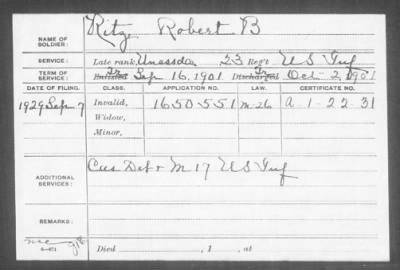 NAME OF SOLDIER: Ritz, Robert B
SERVICE: Late rank, Unassd 23 Reg't U S Inf
TERM OF SERVICE: Enlisted Sep 16, 1901 Discharged Oct 2, 1901
DATE OF FILING. CLASS. APPLICATION NO. LAW. CERTIFICATE NO.
1929 Sep 7 Invalid, 1650551 M-26 A-1-22-31
Widow,
Minor,
ADDITIONAL SERVICES: Cas Det + M 17 U S Inf
REMARKS:
Died , 1 , at